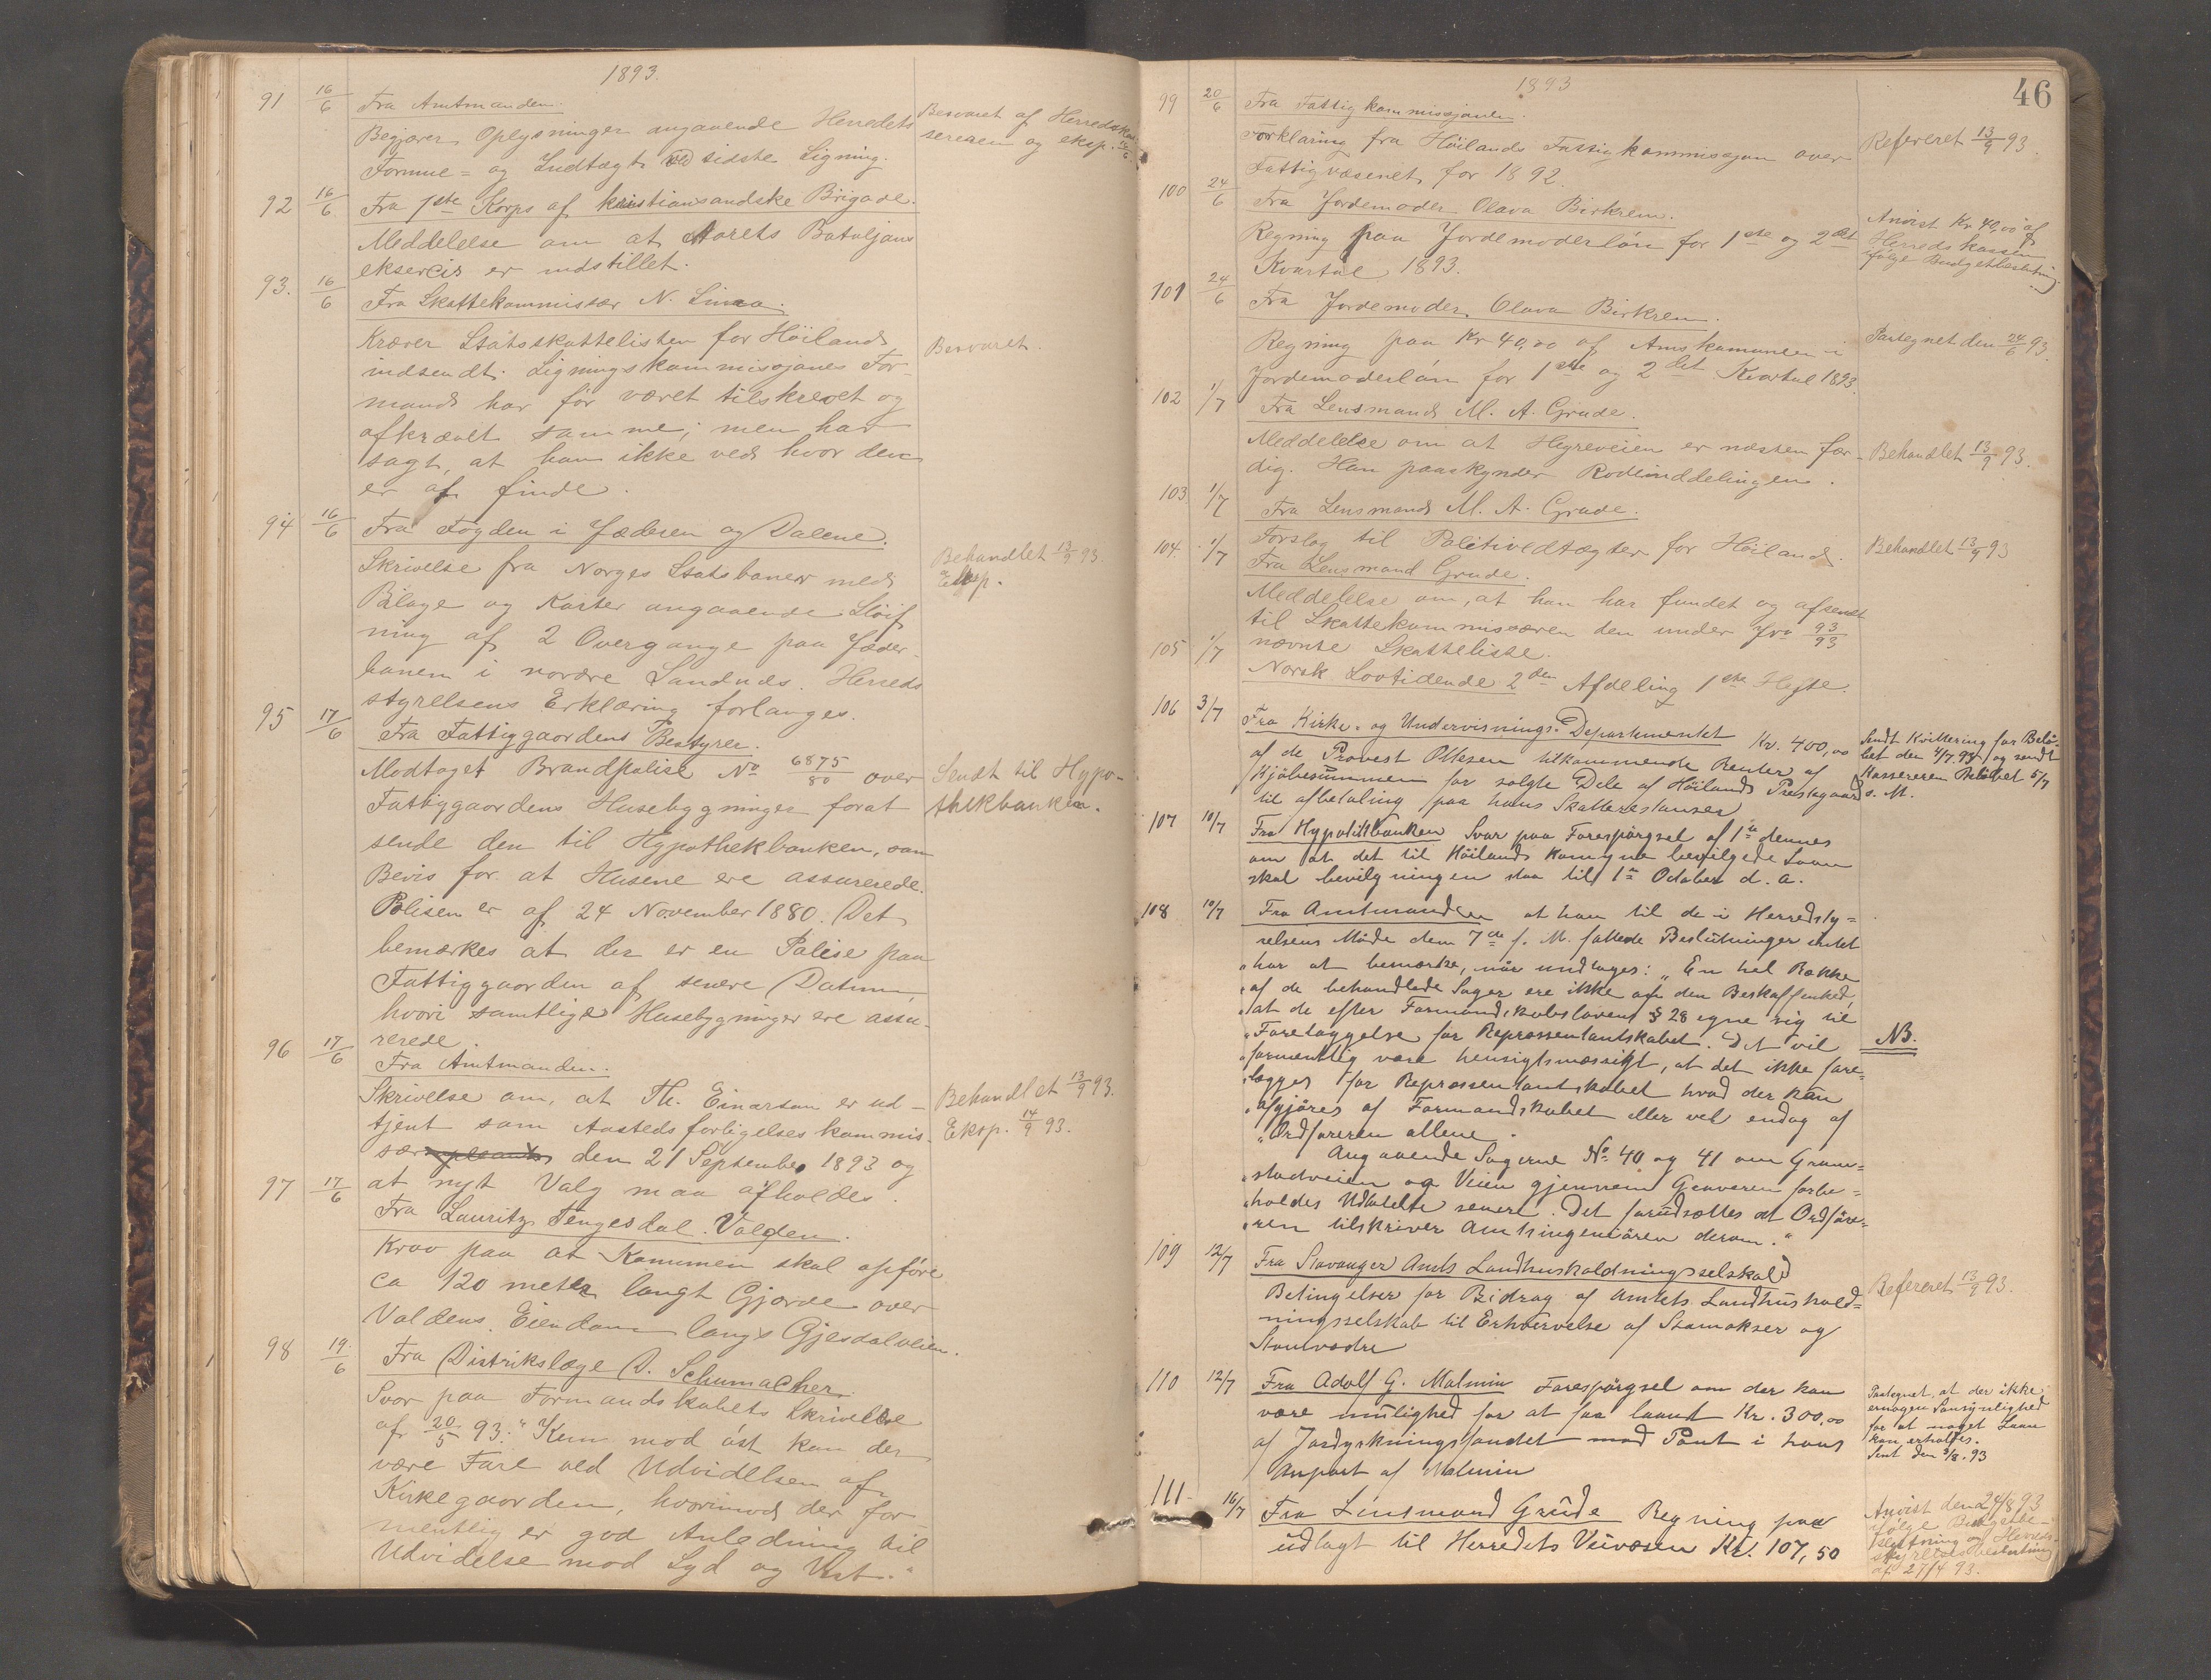 1893.
91 16/6 Fra Amtmanden.
Begjærer Oplysninger angaaende Herredets
Formue= og Indtægt ved sidste Ligning.
Besvaret af Herredskas-
sereren og eksp.
92 16/6 Fra 1ste Korps af Kristiansandske Brigade.
Meddelelse om at Aarets Bataljons
eksercis er indstillet.
93. 16/6 Fra Skattekommissær N. Lima.
Kræver Statsskattelisten for Höiland
indsendt. Ligningskommissjones For-
mand har för været tilskrevet og
afkrævet samme; men har
sagt, at han ikke ved hvor den
er at finde.
Besvaret.
94 16/6 Fra Fogden i Jæderen og Dalene.
Skrivelse fra Norges Statsbaner med
Bilage og Karter angaaende Slöif
ning af 2 Overgange paa Jæder-
banen i nordre Sandnes. Herreds
styrelsens Erklæring forlanges.
Behandlet 13/9 93.
Eksp.
95 17/6 Fra Fattiggaardens Bestyrer.
Modtaget Brandpolise No 6875/80 over
Fattiggaardens Husebygninger forat
sende den til Hypothekbanken, som
Bevis for at Husene ere assurerede.
Polisen er af 24 November 1880. Det
bemærkes at der er en Polise paa
Fattiggaarden af senere Datum,
hvori samtlige Husebygninger ere assu-
rerede.
Sendt til Hypo-
thekbanken.
96 17/6 Fra Amtmanden.
Skrivelse om, at Th. Einarsen er ud-
tjent som Aastedsforligelseskommis-
sær den 21 September 1893 og
at nyt Valg maa afholdes.
Behandlet 13/9 93.
Eksp. 14/9 93.
97 17/6 Fra Lauritz Tengesdal. Valden.
Krav paa at Kommunen skal opføre
ca 120 meter langt Gjærde over
Valdens Eiendom langs Gjesdalveien.
98 19/6 Fra Distrikslæge D. Schumacher
Svar paa Formandskabets Skrivelse
af 20/5 93: "Kun mod öst kan der
være Fare ved Udvidelsen af
Kirkegaarden, hvorimod der for-
mentlig er god Anledning til
Udvidelse mod Syd og Vest."
1893
46
99 20/6 Fra Fattigkommissjonen.
Forklaring fra Höilands Fattigkommissjon over
Fattigvæsenet for 1892.
Refereret 13/9 93.
100 24/6 Fra Jordemoder Olava Birkrem.
Regning paa Jordemoderlön for 1ste og 2det
Kvartal 1893.
Anvist Kr 40,00 af
Herredskassen
ifölge Budgetbeslutning
101 24/6 Fra Jordemoder Olava Birkrem.
Regning paa Kr 40,00 af Amskomunen i
Jordemoderlön for 1ste og 2det Kvartal 1893.
Paategnet den 24/6 93.
102 1/7 Fra Lensmand M. A. Grude.
Meddelelse om at Hegreveien er næsten fær-
dig. Han paaskynder Rodeinddelingen.
Behandlet 13/9 93.
103 1/7 Fra Lensmand M. A. Grude.
Forslag til Politivedtægter for Höiland.
Behandlet 13/9 93
104. 1/7 Fra Lensmand Grude.
Meddelelse om, at han har fundet og afsendt
til Skattekommissæren den under Jro 93/93
nævnte Skatteliste.
105 1/7 Norsk Lovtidende 2den Afdeling 1ste Hefte.
106 3/7 Fra Kirke- og Undervisnings-Departmentet Kr. 400,00
af de Provest Ollesen tilkommende Renter af
Kjöbesummen for solgte Dele af Höilands Prestegaard
til afbetaling paa hans Skatterestanser
Sendt Kvittering for Belö-
bet den 4/7 93 og sendt
Kassereren Belöbet 5/7
s. M.
107 10/7 Fra Hypotekbanken Svar paa Forespörgsel af 1ste dennes
om at det til Höilands Komune bevilgede Laan
skal bevilgningen staa til 1ste October d. a.
108 10/7 Fra Amtmanden at han til de i Herredsty=
relsens Möde dem 7de f. M. fattede Beslutninger intet
"har at bemærke, når undtages: "En hel Række
"af de behandlede Sager ere ikke af den Beskaffenhed,
"at de efter Formandskabslovens § 28 egne sig til
"Foretaggelse for Repræsentantskabet. Det vil
"formentlig være hensigtsmæssigt, at det ikke fore=
"lægges for Repræsentantskabet hvad der kan
"afgjöres af Formandskabet eller vel endog af
"Ordföreren allene.
Angaaende Sagerne No 40 og 41 om Gram=
"stadveien og Veien gjennem Graveren forbe=
"holdes Udtalelse senere. Det forudsættes at Ordföre=
"ren tilskriver Amtsingeniören derom."
NB.
109 12/7 Fra Stavanger Amts Landhusholdningsselskab
Betingelser for Bidrag af Amtets Landhushold=
ningsselskab til Erhvervelse af Stamokser og
Stamvædre
Refereret 13/9 93.
110 12/7 Fra Adolf G. Malmin Forespörgsel om der kan
være mulighed for at faa laant Kr. 300,00
af Jordyrkningsfondet mod Pant i hans
Anpart af Malmin
Paategnet, at der ikke
er nogen Sansynlighed
for at noget Laan
kan erholdes.
Sent den 3/8. 93
111- 16/7 Fra Linsmand Grude Regning paa
udlagt til Herredets Veivæsen Kr. 107,50
Anvist den 24/8 93
ifölge Budgetbe-
slutning og Herreds-
styrelsesbeslutning
af 27/4 93.